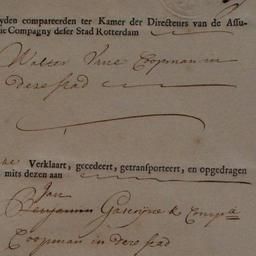 yden compareerden ter Kamer der Directeurs van de Assu-
tie Compagny deser Stad Rotterdam
Walter Coopman in
dese stad
Verklaart, gecedeert, getransporteert, en opgedragen
mits dezen aan
Jan
Benjamin & Compa
Coopman in dese stad